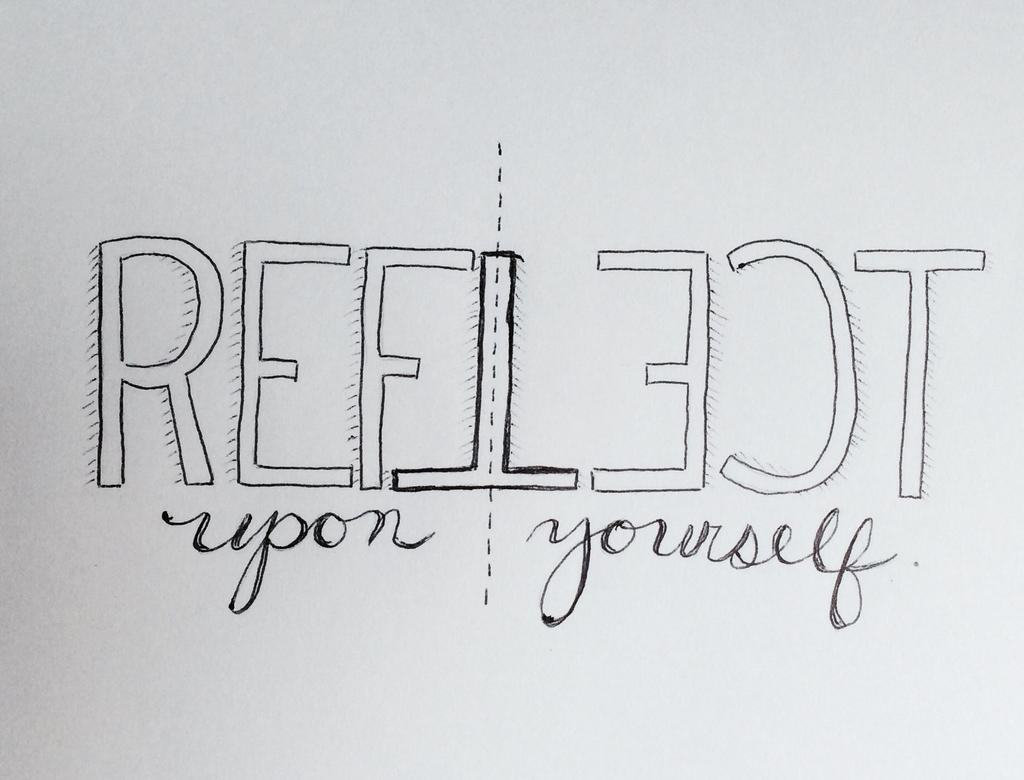 REFLECT
upon yourself.